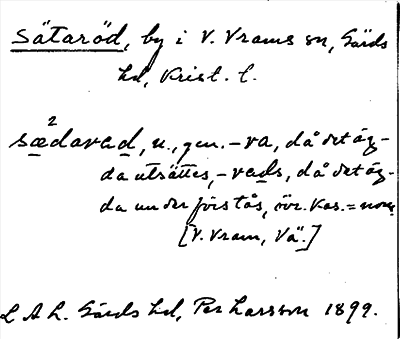 Sätaröd, by i V. Vrams sn, Gärds
hd, Krist. l.
2
sædavad, n., gen. -va, då det äg-
da utsättes, -vads, då det äg-
da underförstås, övr. kas. = nom.
[V. Vram, Vä.]
L A L. Gärds hd, Per Larsson 1899.